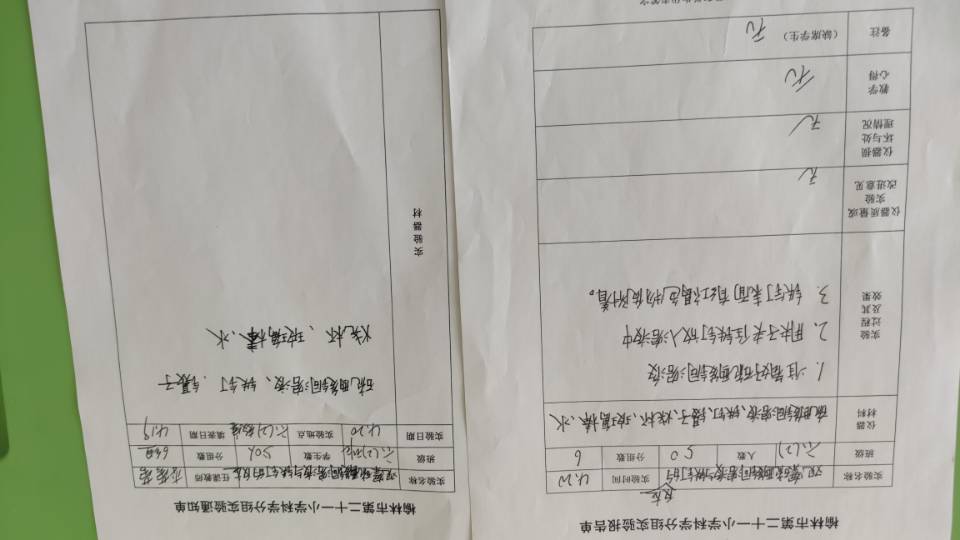 榆林市第二十一小学科学分组实验通知单
实验名称 观察硫酸铜溶液与铁钉的反应 任课教师
班级 六(2)班 学生数 50人 分组数 6组
实验日期 4.20 实验地点 六(2)教室 填表日期 4.19
实验器材
硫酸铜溶液、铁钉、镊子
烧杯、玻璃棒、水
榆林市第二十一小学科学分组实验报告单
实验名称 观察硫酸铜溶液与铁钉的反应 实验时间 4.20
班级 六(2) 人数 50 分组数 6
仪器材料 硫酸铜溶液、铁钉、镊子、烧杯、玻璃棒、水
实验过程及其效果
1. 准备好硫酸铜溶液
2. 用夹子夹住铁钉放入溶液中
3. 铁钉表面有红褐色物质附着。
仪器质量或实验改进意见 无
仪器损坏与处理情况 无
教学心得 无
备注 (缺席学生) 无